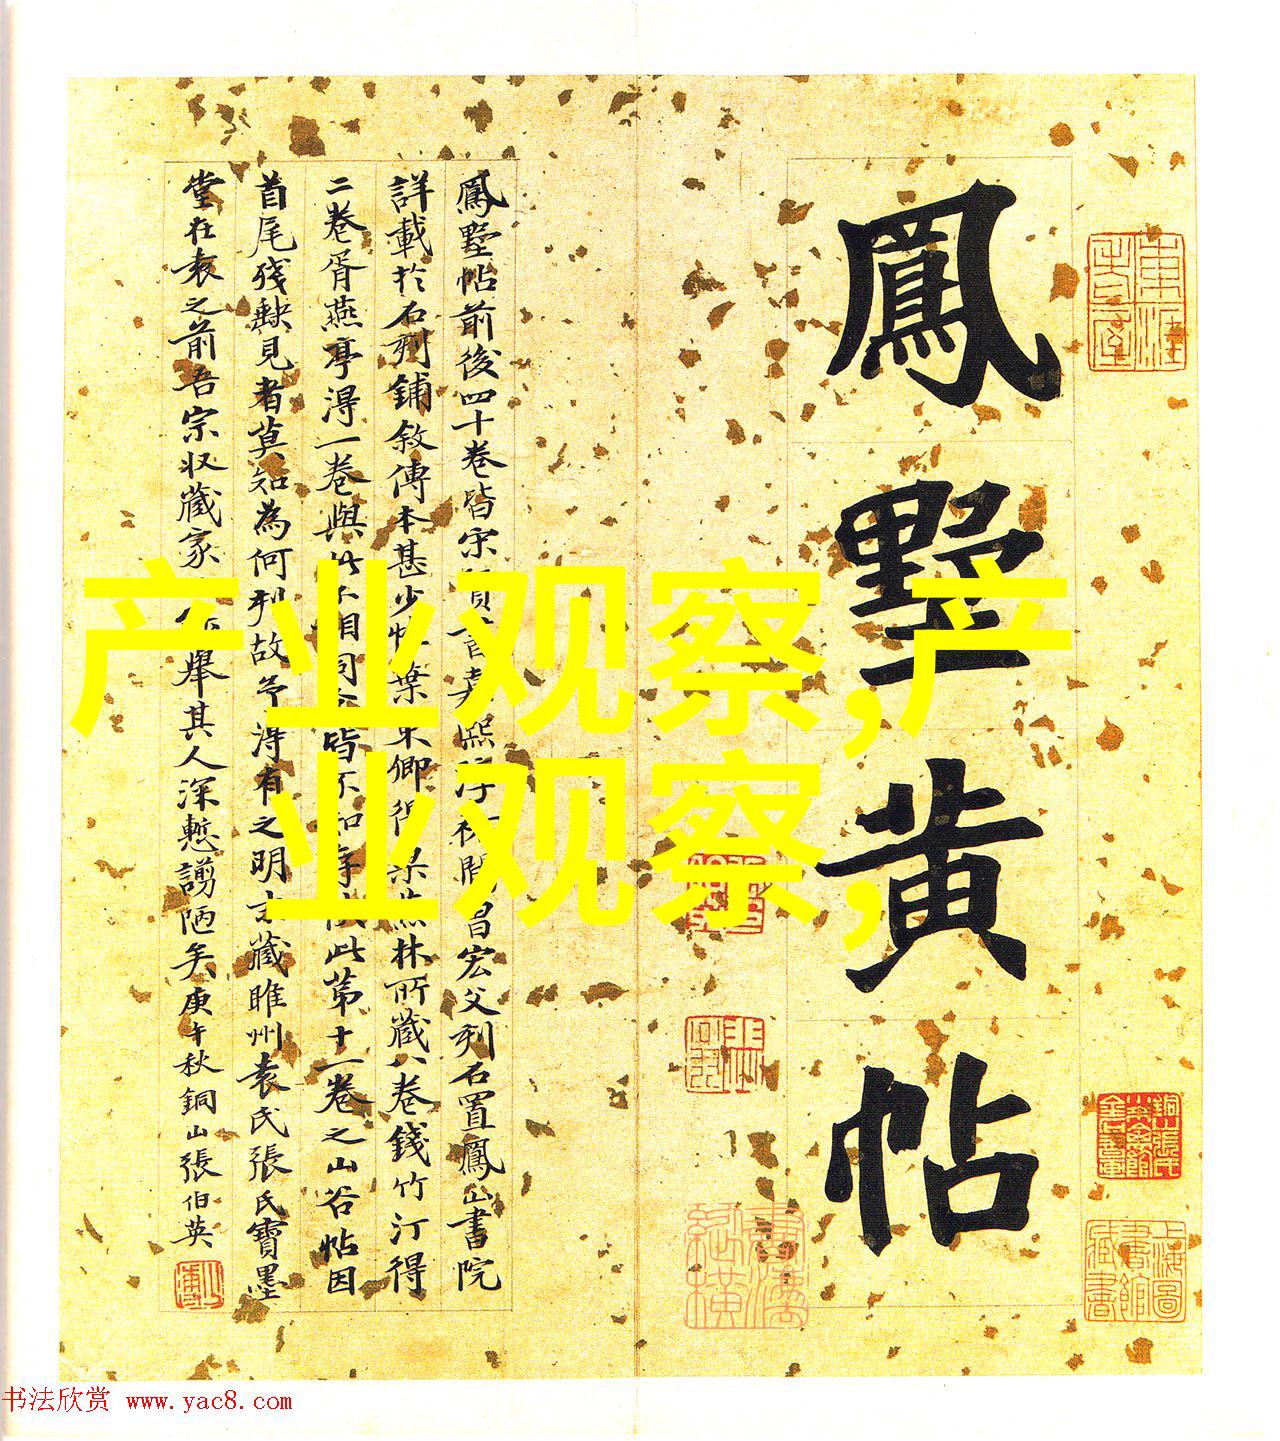 鳳墅黄帖
鳳墅帖前後四十卷皆宋
宏父刻石置鳳山書院
詳載於石刻鋪敘傳本甚少
葉東卿得
林所藏八卷錢竹汀得
二卷胥燕亭淂一卷與此
皆不知
此第十一卷之山谷帖因
首尾殘缺見者莫知為何刻故予淂有之明末藏睢州袁氏張氏寶墨
堂在袁之前吾宗収藏家
舉其人深慙謭陋矣庚午秋銅山張伯英
产业观察,产
业观察,
上海圖書館藏書
书法欣赏 www.yac8.com